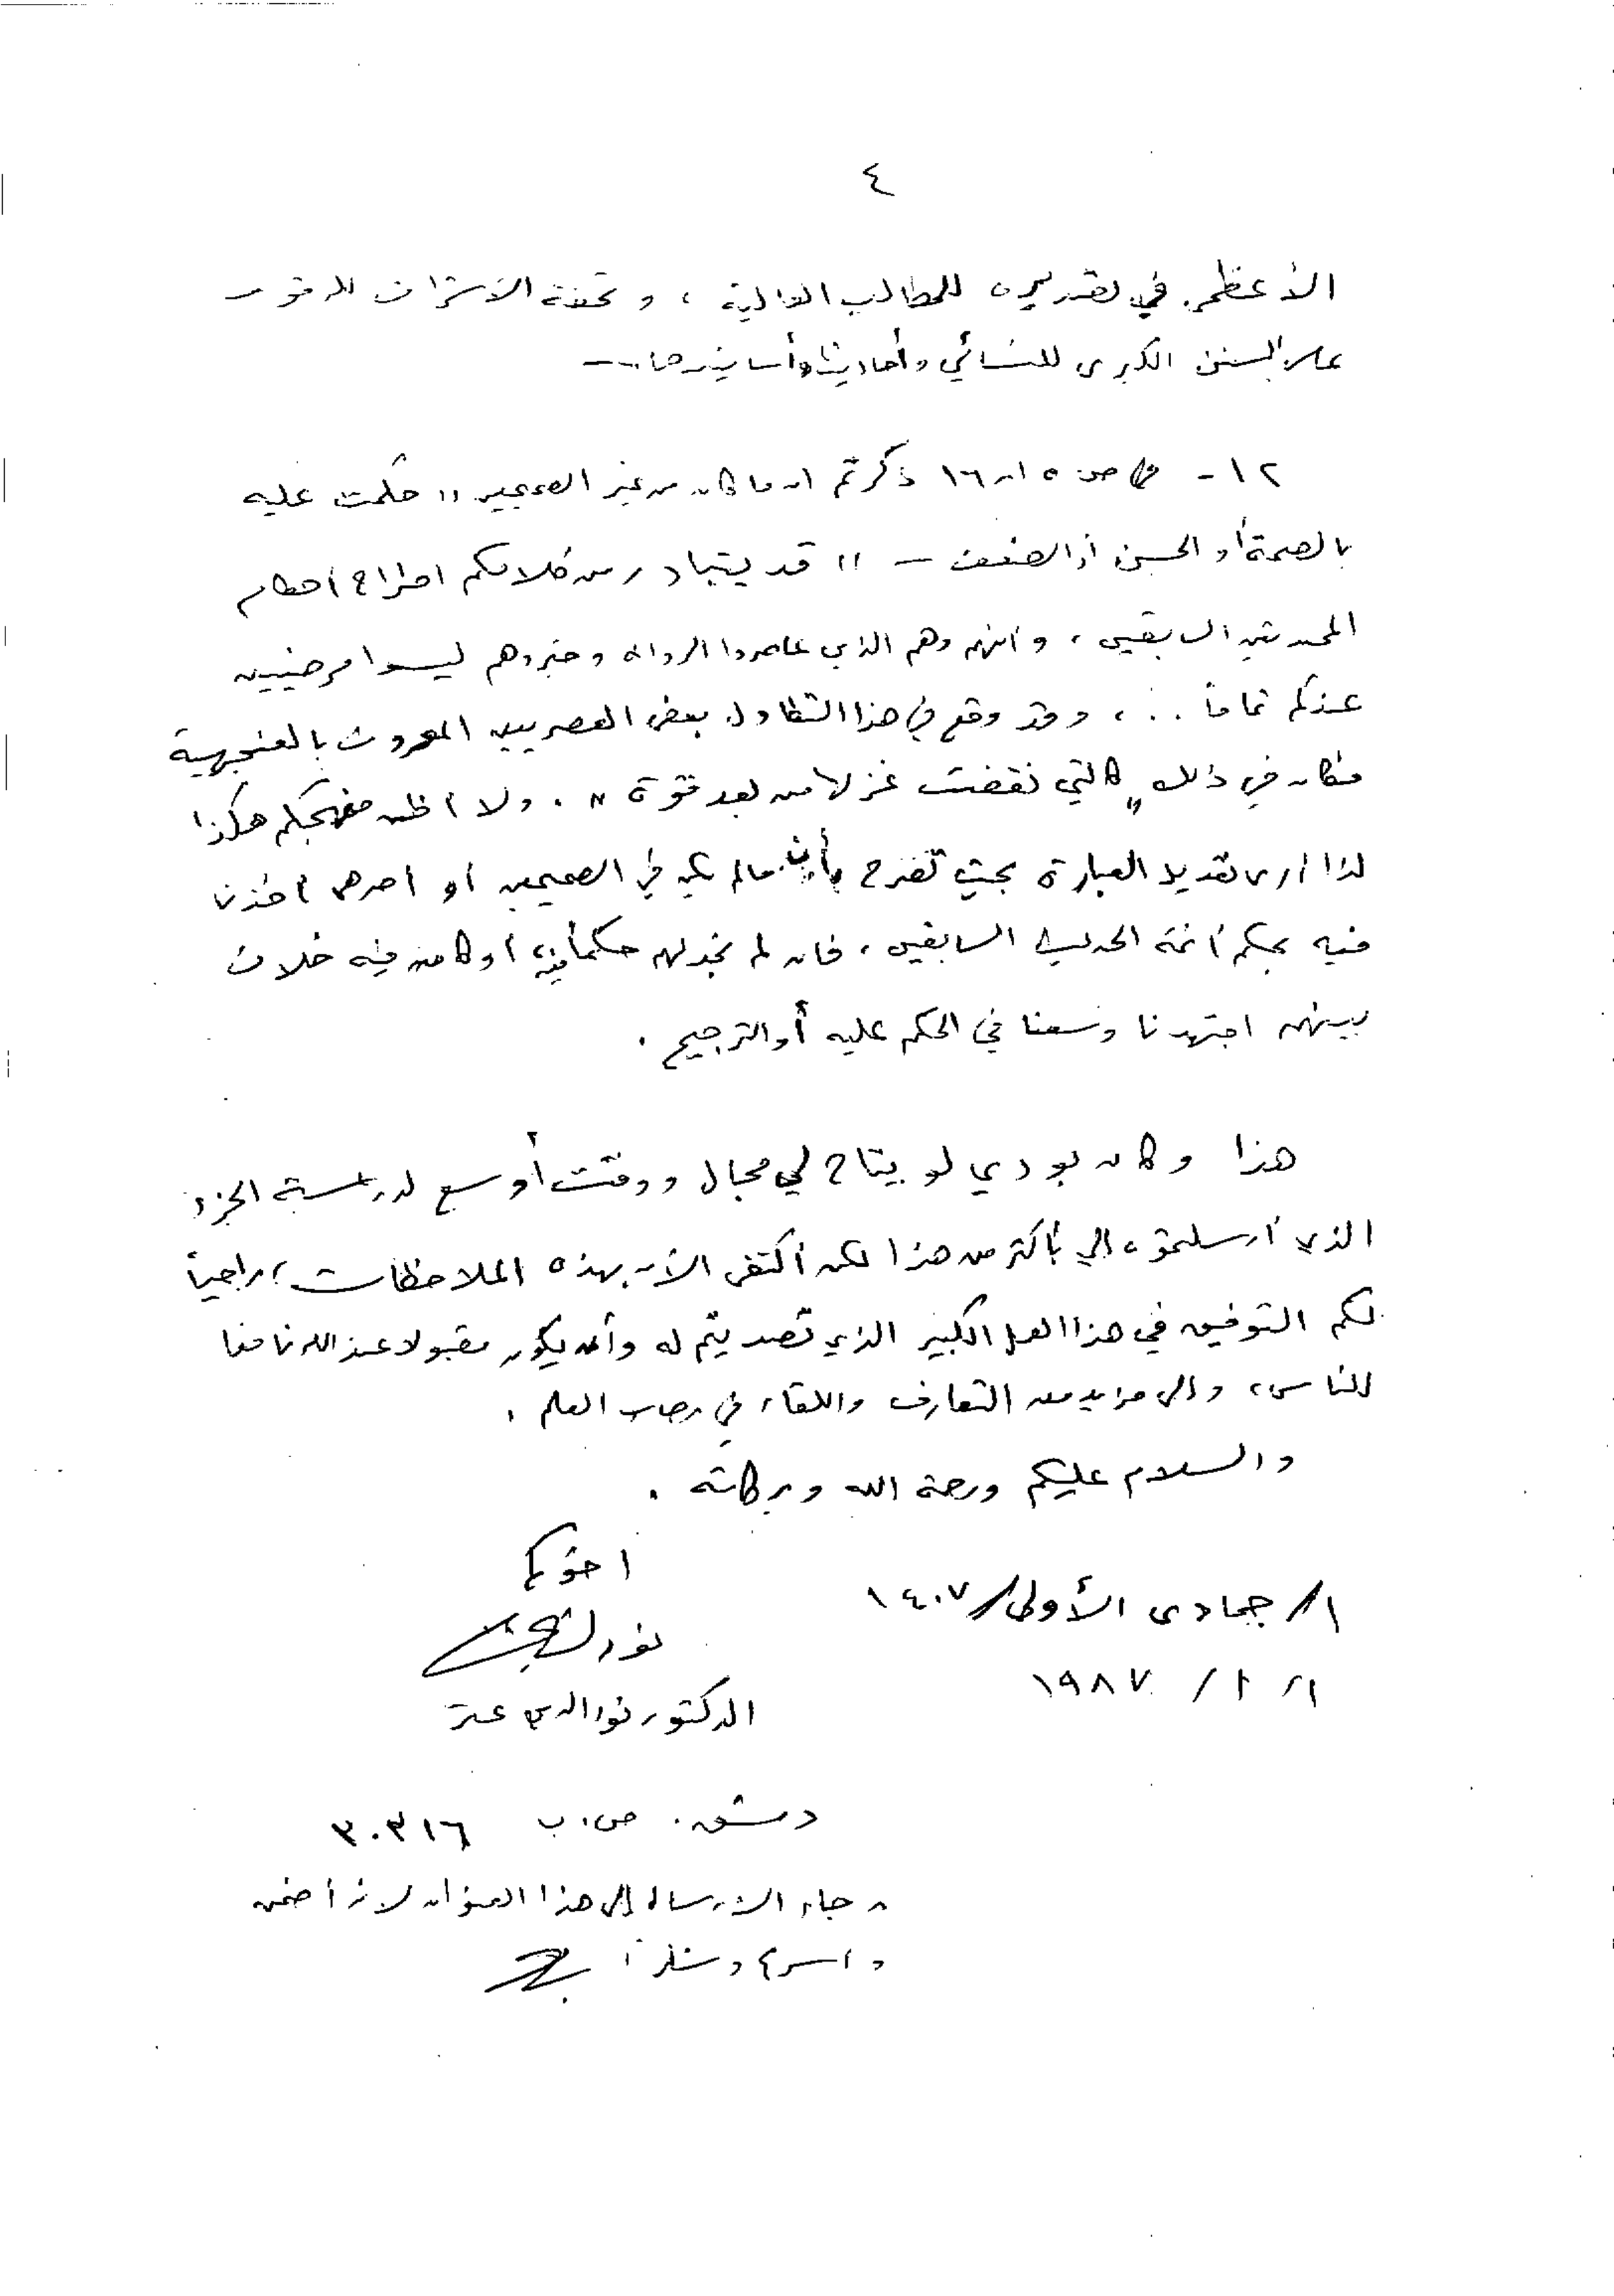 ٤
الأعظمي في تقديمه للمطالب العالية ، وتحفة الأشراف للوقوف
على السنن الكبرى للنسائي وأحاديثها وأسانيدها...
١٢ - في ص ١٥ ان ١٦ ذكرتم ان ما كان من غير الصحيحين "حكمت عليه
بالصحة أو الحسن أو الضعف – " قد يتبادر من كلامكم اطراح أحكام
المحدثين السابقين ، وأنهم وهم الذين عاصروا الرواة وخبروهم ليسوا مرضيين
عندكم تماماً . . ، وقد وقع في هذا التطاول بعض العصريين المعروف بالعنجهية
فكان في ذلك "كالتي نقضت غزلها من بعد قوة" . ولا أظن منهجكم هكذا
لذا أرى تعديل العبارة بحيث تصرح بأن ما لم يكن في الصحيحين أو احدهما أخذنا
فيه بحكم أئمة الحديث السابقين ، فان لم نجد لهم حكماً فيه أو كان فيه خلاف
بينهم اجتهدنا وسعنا في الحكم عليه أو الترجيح .
هذا وكان بودي لو يتاح لي مجال ووقت أوسع لدراسة الجزء
الذي أرسلتموه إلي بأكثر من هذا لكن أكتفي الآن بهذه الملاحظات ، راجياً
لكم التوفيق في هذا العمل الكبير الذي تصديتم له وأن يكون مقبولا عند الله نافعا
للناس ، وإلى مزيد من التعارف واللقاء في رحاب العلم .
والسلام عليكم ورحمة الله وبركاته .
اخوكم
١/ جمادى الأولى/ ١٤٠٧
نور الدين عتر
١ / ١ / ١٩٨٧
الدكتور نور الدين عتر
دمشق . ص.ب ٣٠٣١٦
رجاء الارسال إلى هذا العنوان لأنه أضمن
وأسرع وشكراً